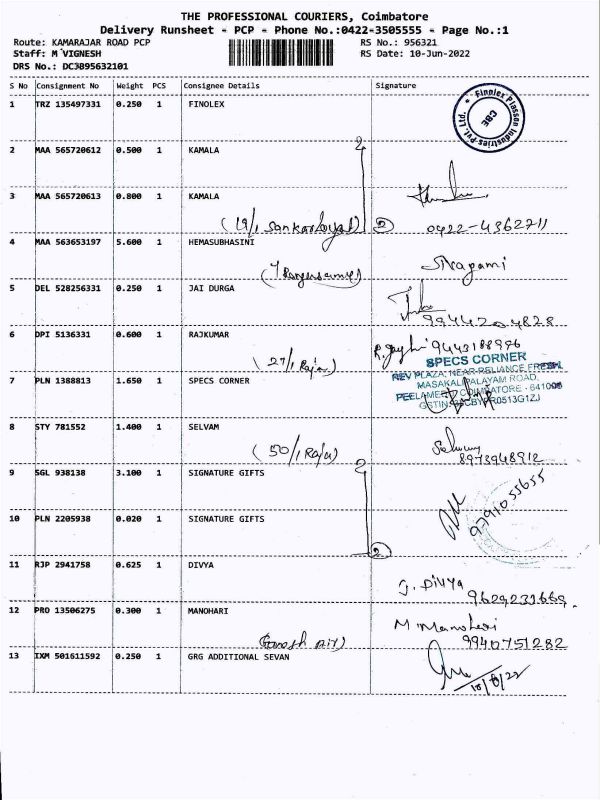 THE PROFESSIONAL COURIERS, Coimbatore
Delivery Runsheet - PCP - Phone No.:0422-3505555 - Page No.:1
Route: KAMARAJAR ROAD PCP RS No.: 956321
Staff: M VIGNESH RS Date: 10-Jun-2022
DRS No.: DC3895632101
S No Consignment No Weight PCS Consignee Details Signature
1 TRZ 135497331 0.250 1 FINOLEX
Finolex Plasson Industries Pvt. Ltd.
CBE
2 MAA 565720612 0.500 1 KAMALA
2
3 MAA 565720613 0.800 1 KAMALA
(19/1 2 0422-4362711
4 MAA 563653197 5.600 1 HEMASUBHASINI
Sivagami
5 DEL 528256331 0.250 1 JAI DURGA
9944204828
6 DPI 5136331 0.600 1 RAJKUMAR
(27/1 Raja) 9443188996
SPECS CORNER
7 PLN 1388813 1.650 1 SPECS CORNER
REV PLAZA, NEAR RELIANCE FRESH,
MASAKALIPALAYAM ROAD,
PEELAMEDU, COIMBATORE - 641006
8 STY 781552 1.400 1 SELVAM
(50/1 Raja) 8973948912
9 SGL 938138 3.100 1 SIGNATURE GIFTS
2
9791055655
10 PLN 2205938 0.020 1 SIGNATURE GIFTS
2
11 RJP 2941758 0.625 1 DIVYA
J. DIVYA
9629233669
12 PRO 13506275 0.300 1 MANOHARI
M Manohari
9940751282
13 IXM 501611592 0.250 1 GRG ADDITIONAL SEVAN
10/6/22